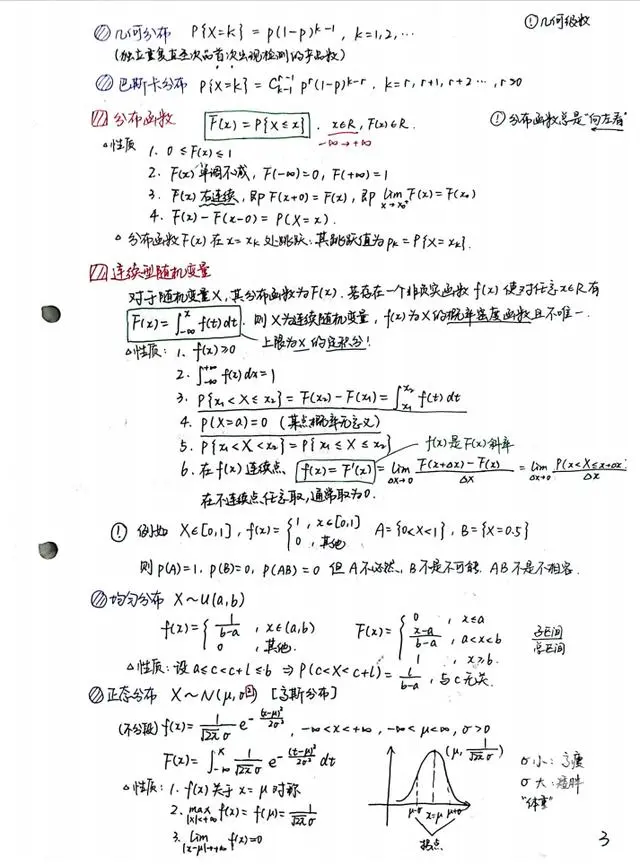 几何分布 P{X=k} = p(1-p)^{k-1}, k=1,2,… ① 几何级数
(独立重复直至次品首次出现检测的产品数)
巴斯卡分布 P{X=k} = C_{k-1}^{r-1} p^r (1-p)^{k-r}, k=r, r+1, r+2 …, r>0
分布函数 F(x) = P{X≤x}, x∈R, F(x)∈R. ! 分布函数总是"向左看"
-∞→+∞
△性质 1. 0≤F(x)≤1
2. F(x)单调不减, F(-∞)=0, F(+∞)=1
3. F(x)右连续, 即F(x+0)=F(x), 即 lim_{x→x₀⁺} F(x)=F(x₀)
4. F(x)-F(x-0)=P(X=x).
△ 分布函数F(x)在x=x_k处跳跃: 其跳跃值为p_k=P{X=x_k}.
连续型随机变量
对于随机变量X, 其分布函数为F(x). 若存在一个非负实函数f(x)使对任意x∈R有
F(x)=∫_{-∞}^{x} f(t)dt. 则X为连续随机变量, f(x)为X的概率密度函数且不唯一.
上限为x的定积分!
△性质: 1. f(x)≥0
2. ∫_{-∞}^{+∞} f(x)dx=1
3. P{x₁<X≤x₂}=F(x₂)-F(x₁)=∫_{x₁}^{x₂} f(t)dt
4. P(X=a)=0 (某点概率无意义)
5. P{x₁<X<x₂}=P{x₁≤X≤x₂} f(x)是F(x)斜率
6. 在f(x)连续点, f(x)=F'(x)=lim_{Δx→0} (F(x+Δx)-F(x))/Δx = lim_{Δx→0} P(x<X≤x+Δx)/Δx
在不连续点任意取, 通常取为0.
! 例如 X∈[0,1], f(x)={1, x∈[0,1] A={0<X<1}, B={X=0.5}
0, 其他
则 P(A)=1, P(B)=0, P(AB)=0 但 A不必然, B不是不可能. AB不是不相容.
均匀分布 X~U(a,b)
f(x)={1/(b-a), x∈(a,b) F(x)={0, x≤a
0, 其他. (x-a)/(b-a), a<x<b 子区间/总区间
1, x≥b.
△性质: 设a≤c<c+l≤b ⇒ P(c<X<c+l)=l/(b-a), 与c无关.
正态分布 X~N(μ,σ²) [高斯分布]
(不分段) f(x)=1/(√2π σ) e^{-(x-μ)²/2σ²}, -∞<x<+∞, -∞<μ<∞, σ>0
F(x)=∫_{-∞}^{x} 1/(√2π σ) e^{-(t-μ)²/2σ²} dt
(μ, 1/(√2π σ))
σ小: 高瘦
σ大: 矮胖
"体重"
△性质: 1. f(x)关于x=μ对称
2. max_{|x|<+∞} f(x)=f(μ)=1/(√2π σ)
3. lim_{|x-μ|→+∞} f(x)=0
μ-σ x=μ μ+σ
拐点
3